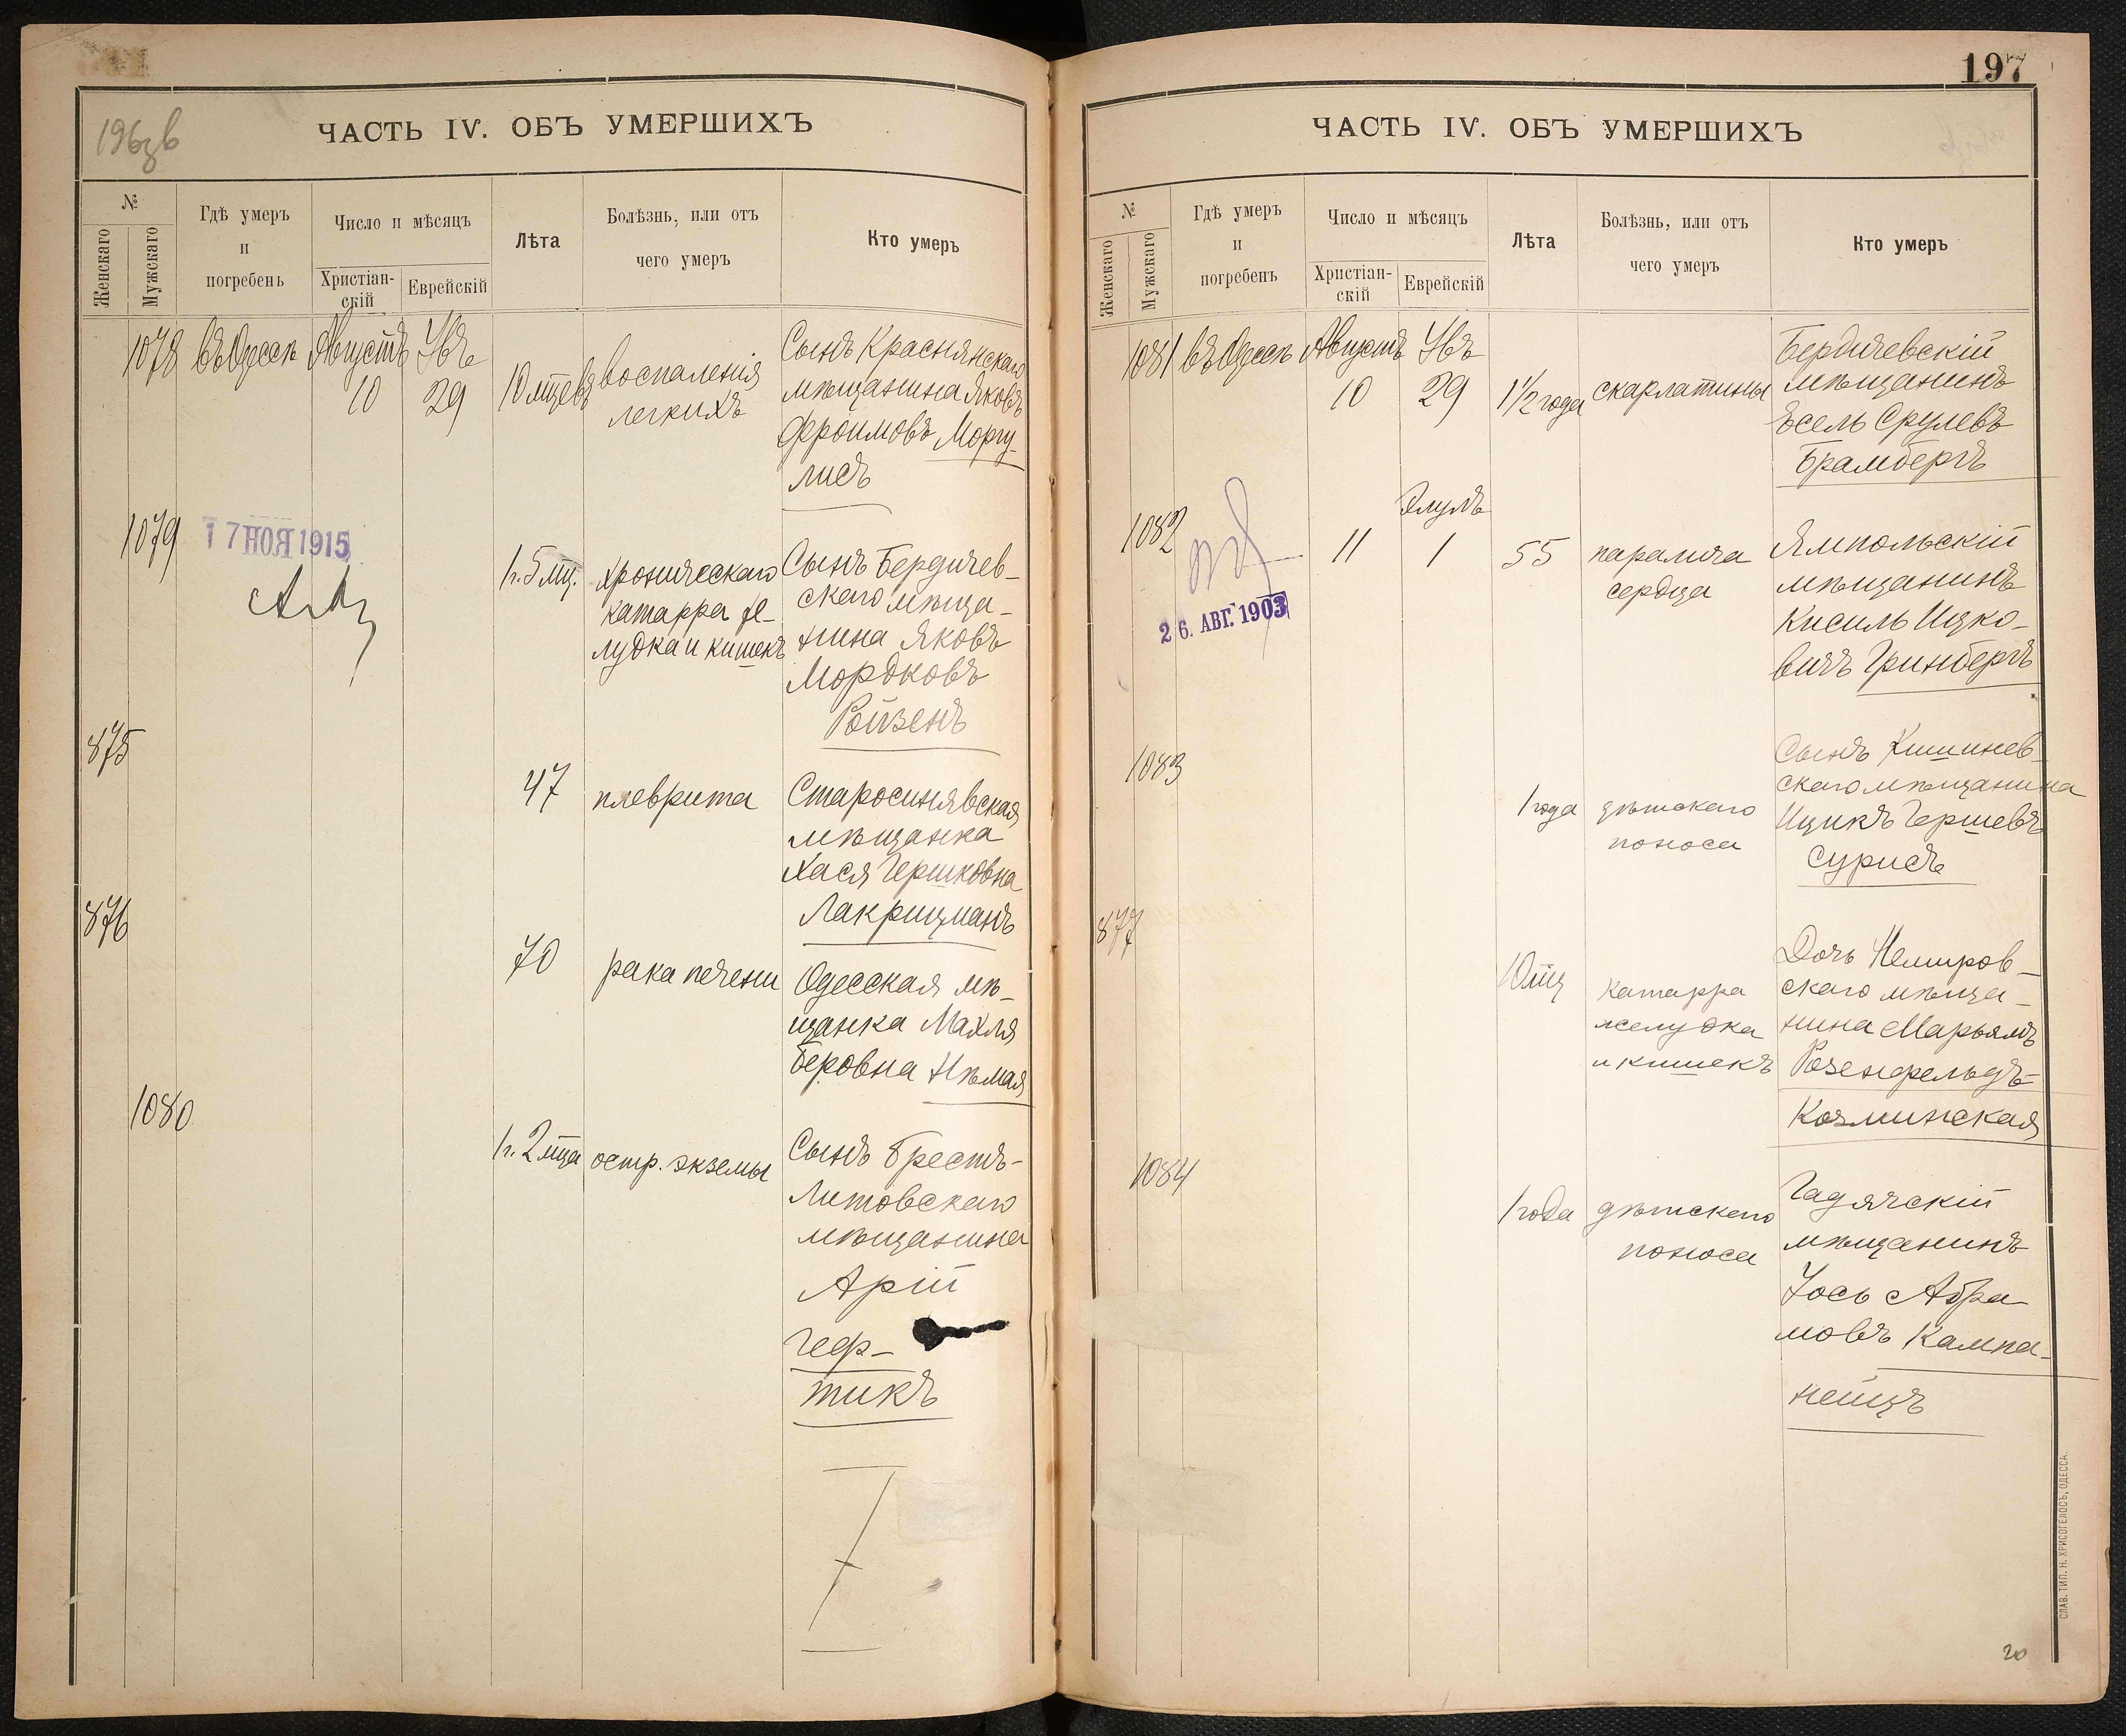 196зв
ЧАСТЬ IV. ОБЪ УМЕРШИХЪ
№
Женскаго
Мужскаго
Гдѣ умеръ
и
погребенъ
Число и мѣсяцъ
Христіан-
скій
Еврейскій
Лѣта
Болѣзнь, или отъ
чего умеръ
Кто умеръ
1078
въ Одессѣ
Августъ
10
Увъ
29
10 мцевъ
воспаленія
легкихъ
Сынъ Краснянскаго
мѣщанина Яковъ
Фроимовъ Моргу-
лисъ
1079
17 НОЯ 1915
1г. 5 мц.
хроническаго
катарра же-
лудка и кишекъ
Сынъ Бердичев-
скаго мѣща-
нина Яковъ
Мордковъ
Ройзенъ
875
47
плеврита
Старосинявская
мѣщанка
Хася Гершковна
Лакрицманъ
876
70
рака печени
Одесская мѣ-
щанка Махля
Беровна Нѣмая
1080
1г. 2 мца
остр. экземы
Сынъ Брестъ-
Литовскаго
мѣщанина
Арій
Геф-
тикъ
197
ЧАСТЬ IV. ОБЪ УМЕРШИХЪ
№
Женскаго
Мужскаго
Гдѣ умеръ
и
погребенъ
Число и мѣсяцъ
Христіан-
скій
Еврейскій
Лѣта
Болѣзнь, или отъ
чего умеръ
Кто умеръ
1081
въ Одессѣ
Августъ
10
Увъ
29
1 1/2 года
скарлатины
Бердичевскій
мѣщанинъ
Ѣсель Срулевъ
Брамбергъ
1082
26. АВГ. 1903
11
Элулъ
1
55
паралича
сердца
Ямпольскій
мѣщанинъ
Кисиль Ицко-
вичъ Гринбергъ
1083
1 года
дѣтскаго
поноса
Сынъ Кишинев-
скаго мѣщанина
Ицикъ Гершевъ
Сурисъ
877
10 мц
катарра
желудка
и кишекъ
Дочь Немиров-
скаго мѣща-
нина Марьямъ
Розенфельдъ-
Козминская
1084
1 года
дѣтскаго
поноса
Гадячскій
мѣщанинъ
Уось Абра-
мовъ Кампа-
нейцъ
СЛАВ. ТИП. Н. ХРИСОГЕЛОСЪ, ОДЕССА.
20